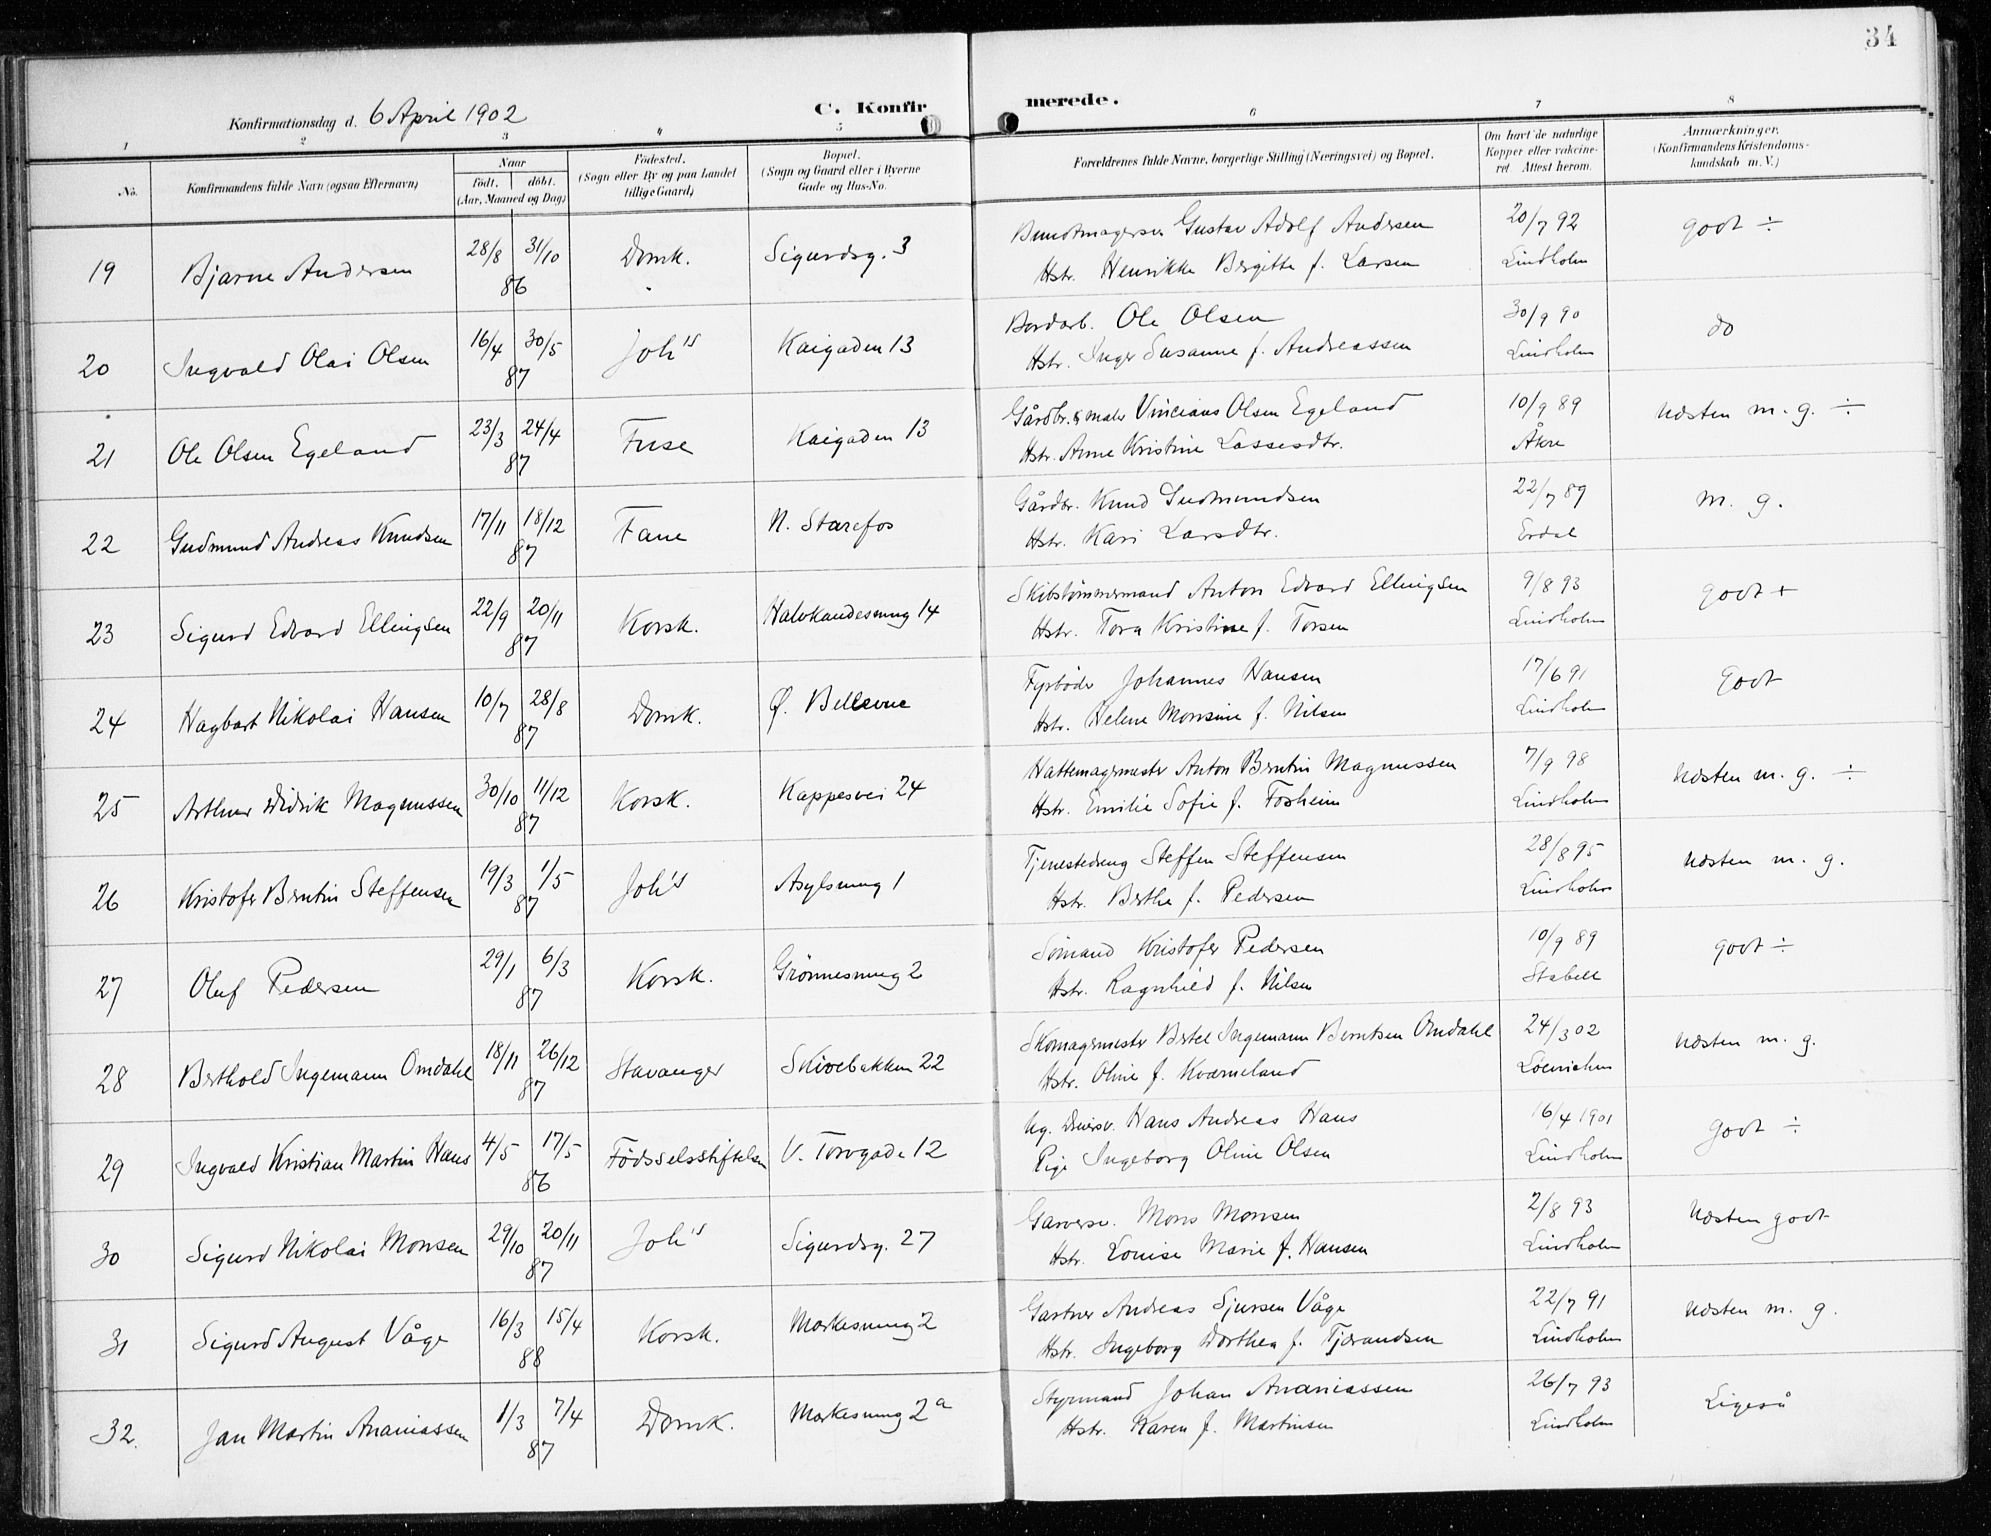 34
Konfirmationsdag d. 6 April 1902
C. Konfirmerede.
1 2 3 4 5 6 7 8
No.
Konfirmandens fulde Navn (ogsaa Efternavn)
Naar
født. døbt.
(Aar, Maaned og Dag)
Fødested.
(Sogn eller By og paa Landet
tillige Gaard)
Bopæl.
(Sogn og Gaard eller i Byerne
Gade og Hus-No.
Forældrenes fulde Navne, borgerlige Stilling (Næringsvei) og Bopæl.
Om havt de naturlige
Kopper eller vakcine-
ret Attest herom.
Anmærkninger.
(Konfirmandens Kristendoms-
kundskab m. V.)
19 Bjarne Andersen 28/8 31/10 86 Domk. Sigurdsg. 3
Buntmagersv. Gustav Adolf Andersen
Hstr. Henrikke Bergitte f. Larsen
20/7 92 Lindholm
godt ÷
20 Ingvald Olai Olsen 16/4 30/5 87 Joh's Kaigaden 13
Bordarb. Ole Olsen
Hstr. Inger Susanne f. Andreassen
30/9 90 Lindholm
do
21 Ole Olsen Egeland 23/3 24/4 87 Fuse Kaigaden 13
Gårdbr. & maler Vincians Olsen Egeland
Hstr. Anne Kristine Lassesdtr.
10/9 89 Åkre
næsten m. g. ÷
22 Gudmund Andreas Knudsen 17/11 18/12 87 Fane N. Starefos
Gårdbr. Knud Gudmundsen
Hstr. Kari Larsdtr.
22/7 89 Erdal
m. g.
23 Sigurd Edvard Ellingsen 22/9 20/11 87 Korsk. Halvkandesmug 14
Skibstømmermand Anton Edvard Ellingsen
Hstr. Tora Kristine f. Torsen
9/8 93 Lindholm
godt +
24 Hagbart Nikolai Hansen 10/7 28/8 87 Domk. Ø. Bellevue
Fyrbøder Johannes Hansen
Hstr. Helene Monsine f. Nilsen
17/6 91 Lindholm
godt
25 Arthur Didrik Magnussen 30/10 11/12 87 Korsk. Kappesvei 24
Hattemagermester Anton Berntin Magnussen
Hstr. Emilie Sofie f. Fosheim
7/9 98 Lindholm
næsten m. g. ÷
26 Kristofer Berntin Steffensen 19/3 1/5 87 Joh's Asylsmug 1
Tjenestedreng Steffen Steffensen
Hstr. Berthe f. Pedersen
28/8 95 Lindholm
næsten m. g.
27 Oluf Pedersen 29/1 6/3 87 Korsk. Grønnesmug 2
Sømand Kristofer Pedersen
Hstr. Ragnhild f. Nilsen
10/9 89 Stabell
godt ÷
28 Berthold Ingemann Omdahl 18/11 26/12 87 Stavanger Skivebakken 22
Skomagermester Bertel Ingemann Berntsen Omdahl
Hstr. Oline f. Kværneland
24/3 02
næsten m. g.
29 Ingvald Kristian Martin Hans 4/5 17/5 86 Fødselsstiftelsen V. Torvgade 12
Ug. Hans Andreas Hans
Pige Ingeborg Oline Olsen
16/4 1901 Lindholm
godt ÷
30 Sigurd Nikolai Monsen 29/10 20/11 87 Joh's Sigurdsg. 27
Garversv. Mons Monsen
Hstr. Louise Marie f. Hansen
2/8 93 Lindholm
næsten godt
31 Sigurd August Våge 16/3 15/4 88 Korsk. Markesmug 2
Gartner Andreas Sjursen Våge
Hstr. Ingeborg Dorthea f. Tjerandsen
22/7 91 Lindholm
næsten m. g.
32. Jan Martin Ananiassen 1/3 7/4 87 Domk. Markesmug 2a
Styrmand Johan Ananiassen
Hstr. Karen f. Martinsen
26/7 93 Lindholm
Ligeså